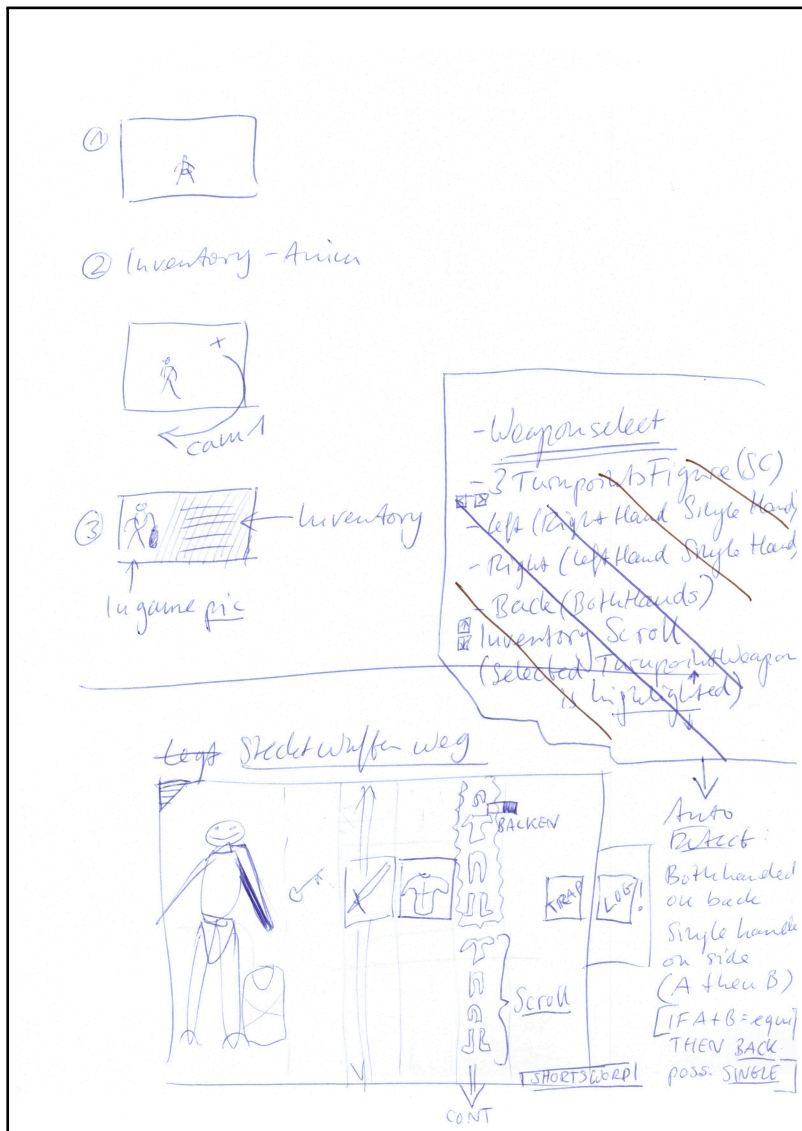 ①
② Inventory - Anim
cam 1
③
Inventory
Ingame pic
- Weaponselect
- 3 Turnpoints Figure (SC)
- Left (Right Hand Single Hand)
- Right (Left Hand Single Hand)
- Back (Both Hands)
Inventory Scroll
(Selected Turnpoint Weapon
is highlighted)
Legt Steckt Waffen weg
BACKEN
TRAP
LOG!
Scroll
SHORTSWORD
CONT
Auto
Detect:
Bothhanded
on back
Single hande
on side
(A then B)
[IF A + B = equi
THEN BACK
poss. SINGLE]